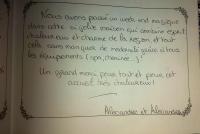 Nous avons passé un week end magique
dans cette si jolie maison qui combine esprit
chaleureux et charme de la region et tout
cela sans manquer de modernité grâce à tous
les équipements (spa, cheminée...)!
Un grand merci pour tout et pour cet
accueil très chaleureux!
Alexandre et Alexandra